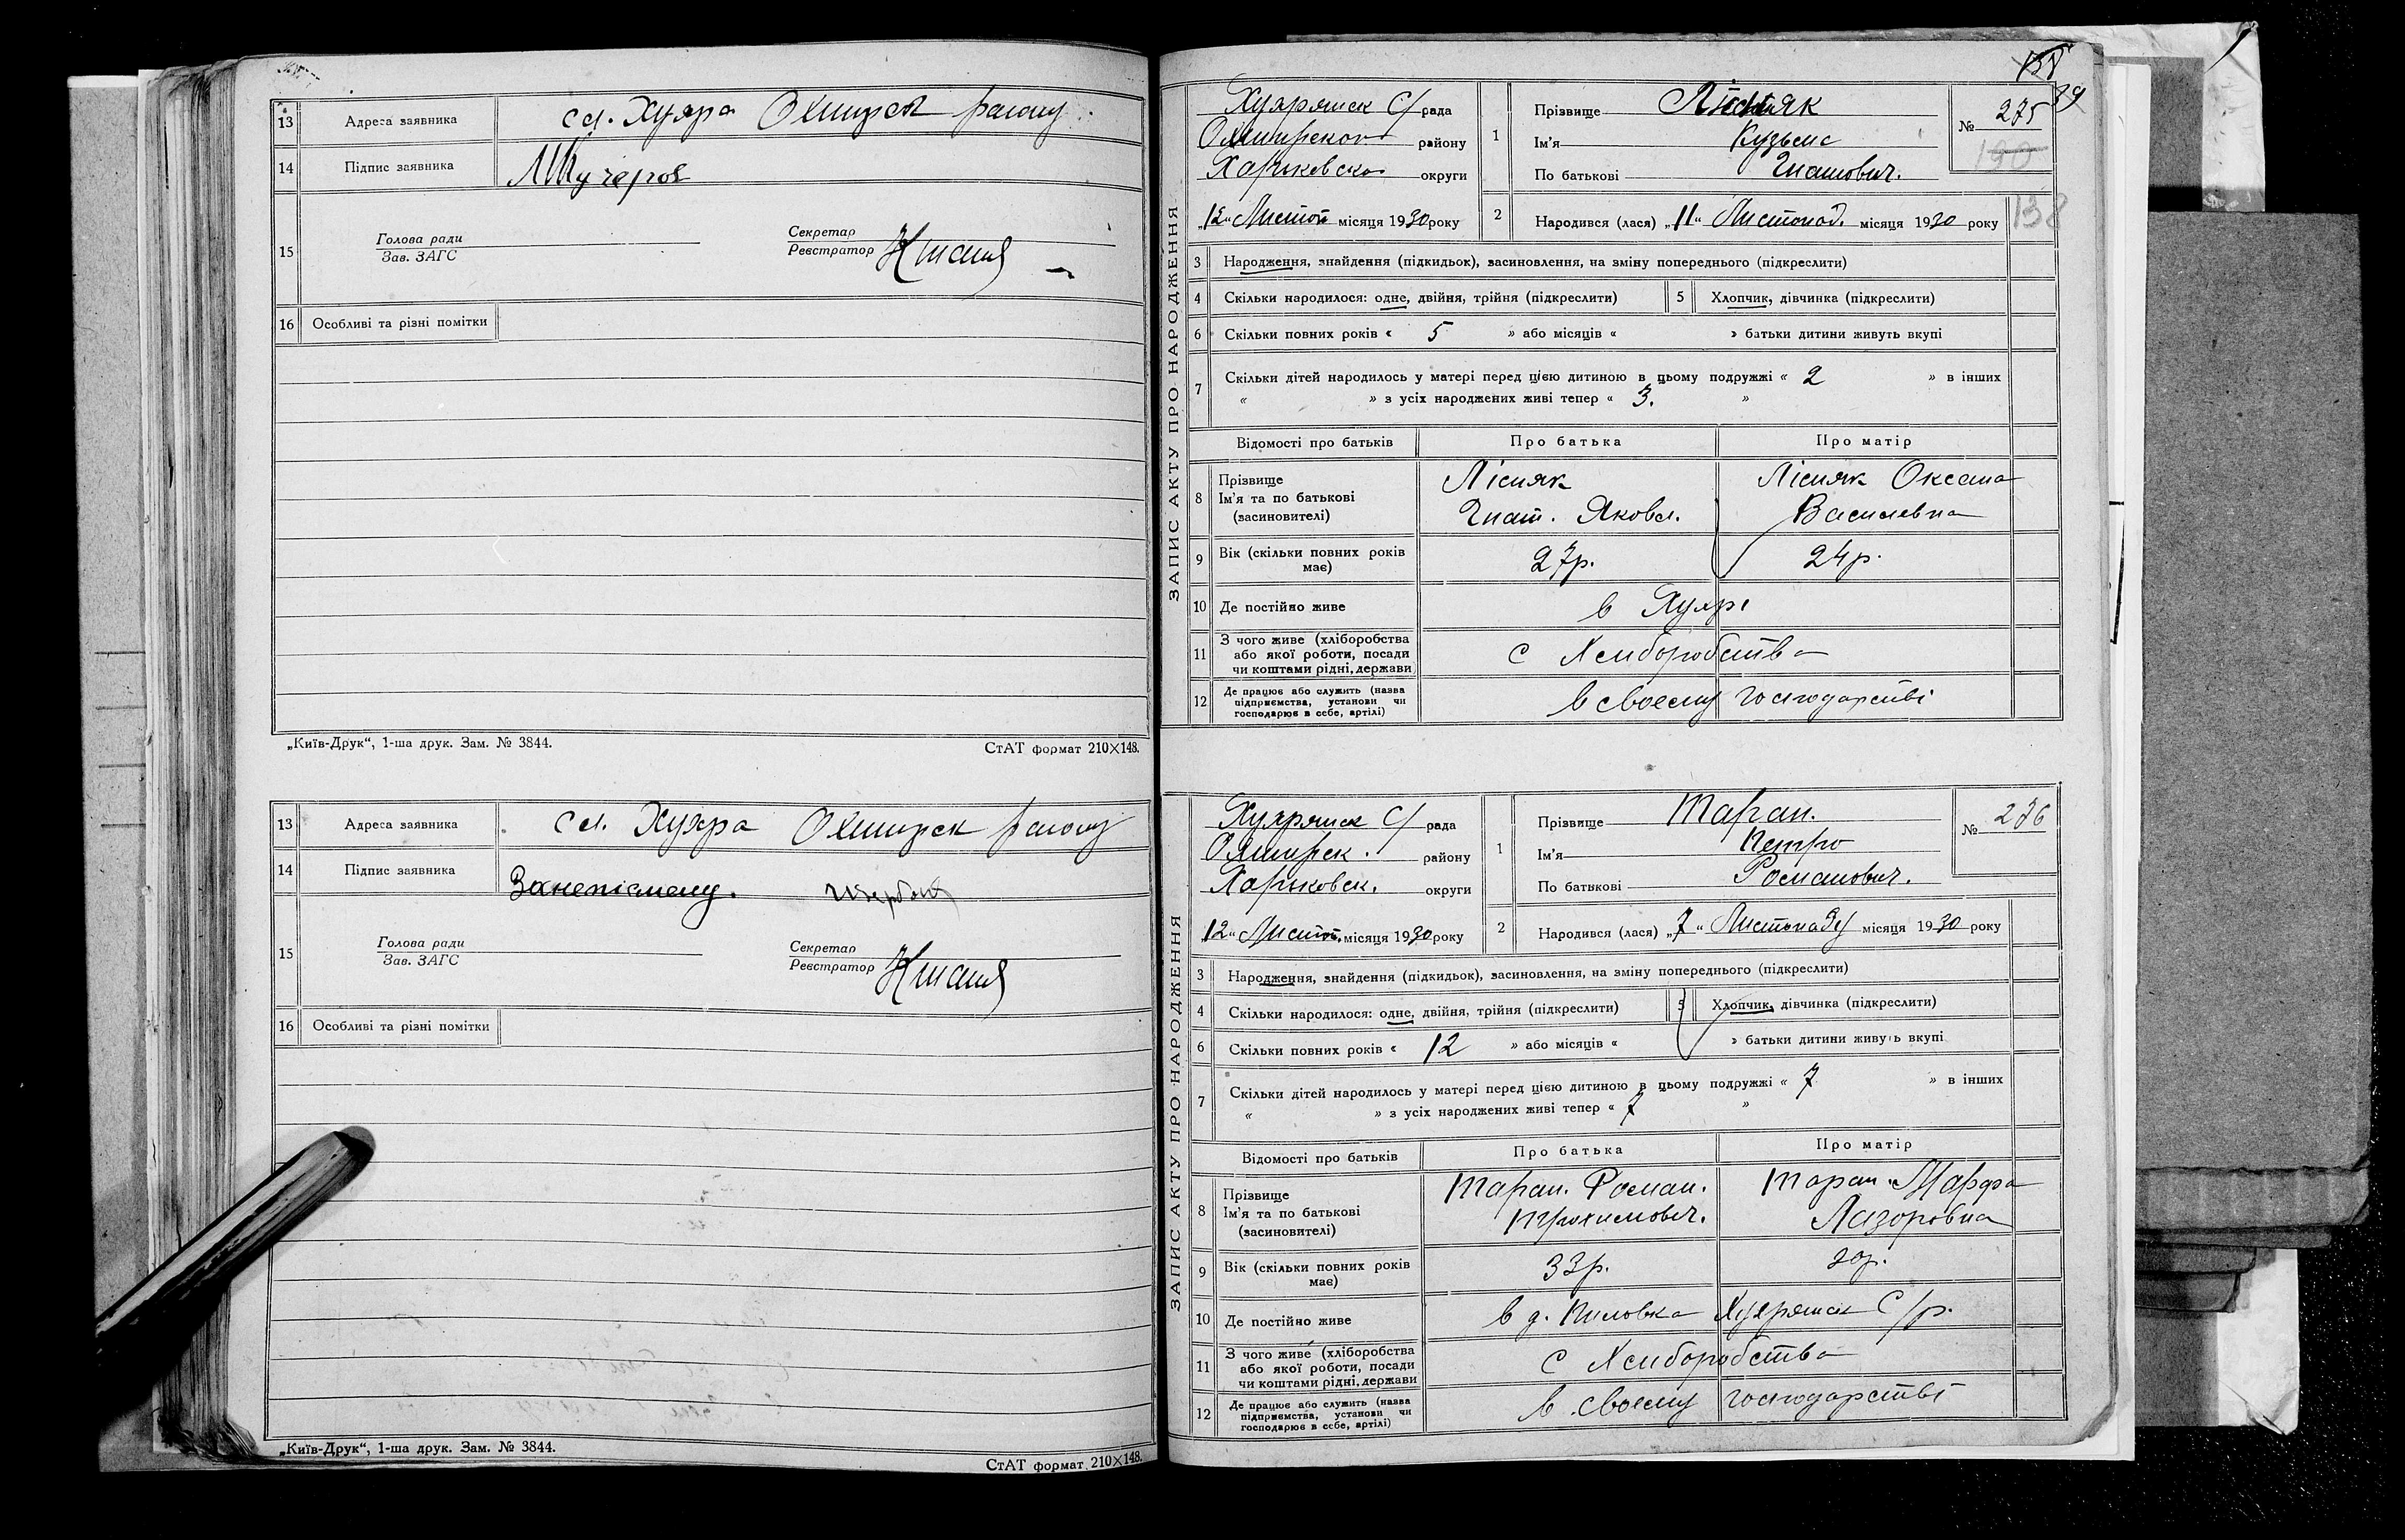 13 Адреса заявника сл. Хухра Охтирск району
14 Підпис заявника
15 Голова ради
Зав. ЗАГС
Секретар
Реєстратор
16 Особливі та різні помітки
„Київ-Друк“, 1-ша друк. Зам. № 3844. СтАТ формат 210×148.
13 Адреса заявника сл. Хухра Охтирск району
14 Підпис заявника За неписмену. Щербак
15 Голова ради
Зав. ЗАГС
Секретар
Реєстратор
16 Особливі та різні помітки
„Київ-Друк“, 1-ша друк. Зам. № 3844. СтАТ формат 210×148.
138
39
ЗАПИС АКТУ ПРО НАРОДЖЕННЯ
Хухрянск С/рада
Охтирского району
Харьковско округи
„12“ Листоп місяця 1930 року
1 Прізвище Лісняк
Ім'я Кузьма
По батькові Гнатович.
№ 275
190
138
2 Народився (лася) „11“ Листопад. місяця 1930 року
3 Народження, знайдення (підкидьок), васиновлення, на зміну попереднього (підкреслити)
4 Скільки народилося: одне, двійня, трійня (підкреслити) 5 Хлопчик, дівчинка (підкреслити)
6 Скільки повних років « 5 » або місяців « » батьки дитини живуть вкупі
7 Скільки дітей народилось у матері перед цією дитиною в цьому подружжі « 2 » в інших
« » з усіх народжених живі тепер « 3. »
Відомості про батьків Про батька Про матір
8 Прізвище
Ім'я та по батькові
(засиновителі)
Лісняк
Гнат. Яковл.
Лісняк Оксана
Василевна
9 Вік (скільки повних років має) 27р. 24р.
10 Де постійно живе в Хухрі
11 З чого живе (хліборобства
або якої роботи, посади
чи коштами рідні, держави
с Хлиборобства
12 Де працює або служить (назва
підприємства, установи чи
господарює в себе, артілі)
в своему господарстві
ЗАПИС АКТУ ПРО НАРОДЖЕННЯ
Хухрянск С/рада
Охтирск. району
Харьковск. округи
„12“ Листоп. місяця 1930 року
1 Прізвище Таран.
Ім'я Петро
По батькові Романович.
№ 276
2 Народився (лася) „7“ Листопаду місяця 1930 року
3 Народження, знайдення (підкидьок), васиновлення, на зміну попереднього (підкреслити)
4 Скільки народилося: одне, двійня, трійня (підкреслити) 5 Хлопчик, дівчинка (підкреслити)
6 Скільки повних років « 12 » або місяців « » батьки дитини живуть вкупі
7 Скільки дітей народилось у матері перед цією дитиною в цьому подружжі « 7 » в інших
« » з усіх народжених живі тепер « 7 »
Відомості про батьків Про батька Про матір
8 Прізвище
Ім'я та по батькові
(засиновителі)
Таран. Роман.
Трохимович.
Таран. Марфа
Лазоровна
9 Вік (скільки повних років має) 33р. 30р.
10 Де постійно живе в д. Пиловка Хухрянск С/р.
11 З чого живе (хліборобства
або якої роботи, посади
чи коштами рідні, держави
с Хлиборобства
12 Де працює або служить (назва
підприємства, установи чи
господарює в себе, артілі)
в своему господарстві